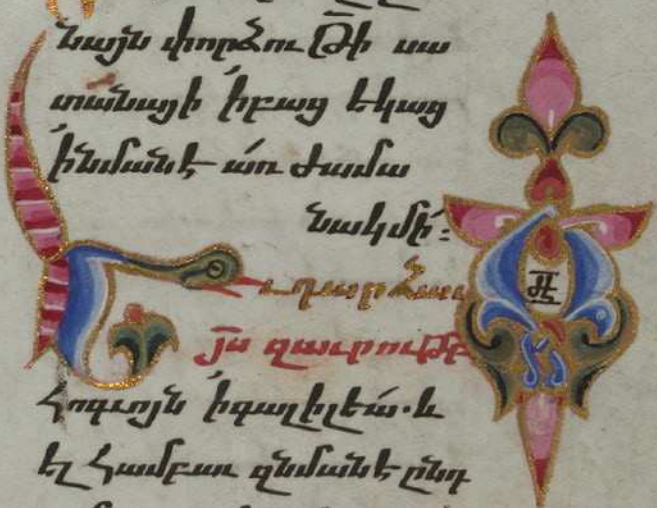 նայն փորձութի սա
տանայի ՛ի բաց եկաց
՛ի նմանէ առ ժամա
նակ մի։
Եւ դարձաւ
յս զաւրութբ
հոգւոյն ՛ի գալիլեա. և
ել համբաւ զնմանէ ընդ
ժէ